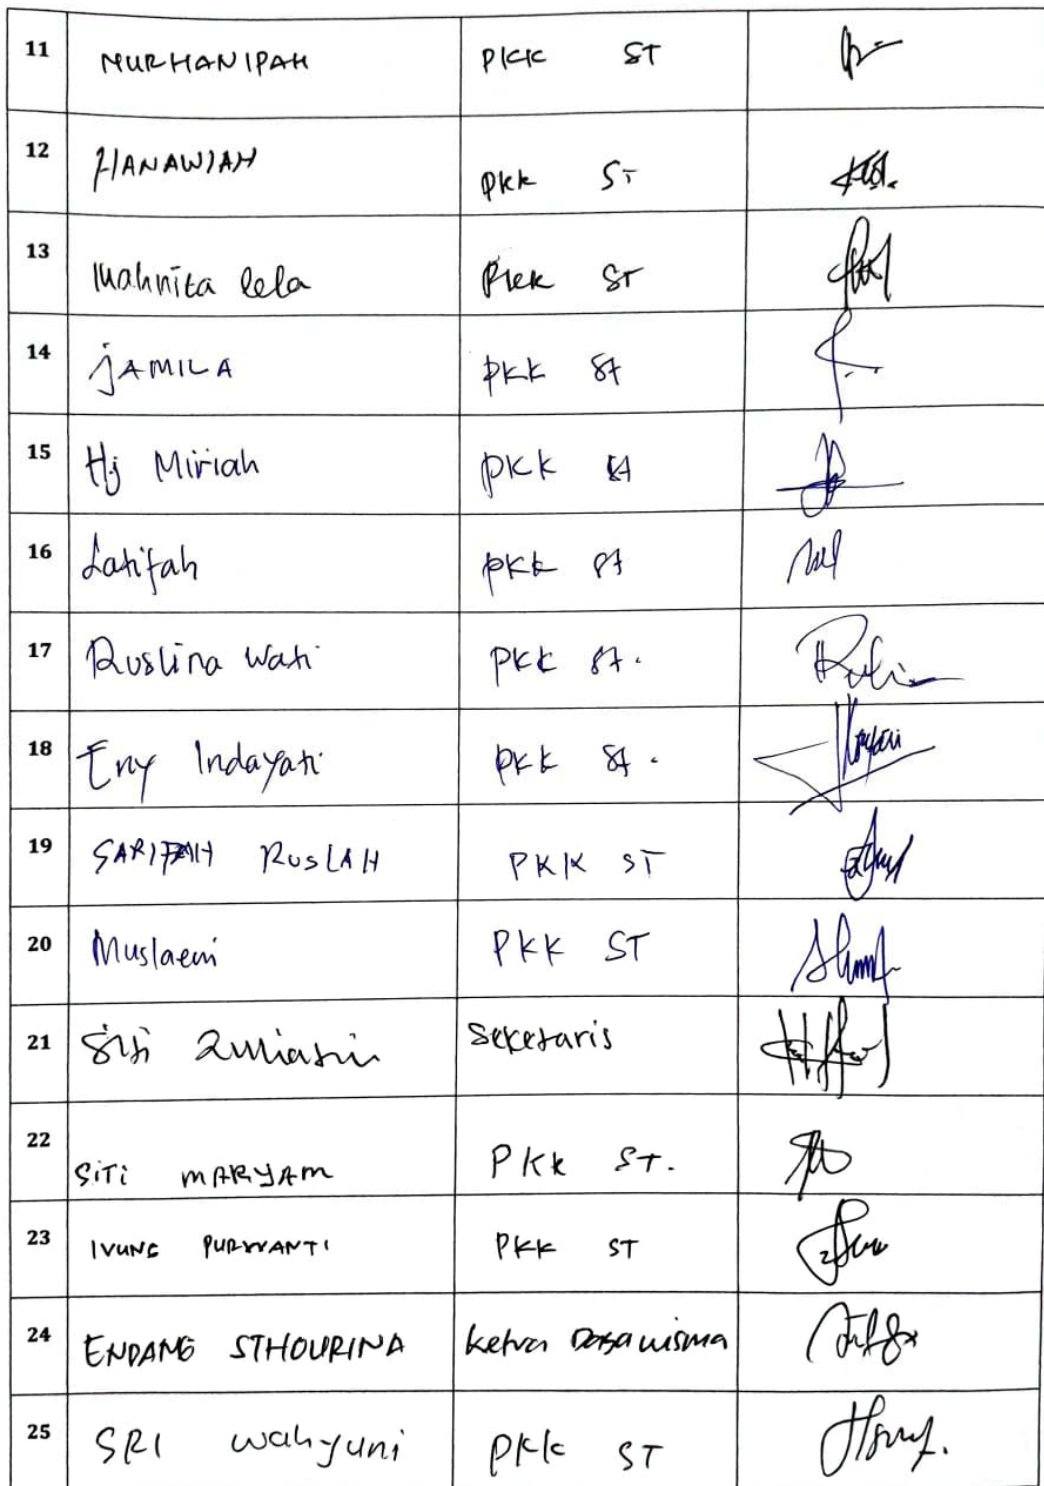 11 NURHANIPAH PKK ST
12 HANAWIAH PKK ST
13 Mahnita lela PKK ST
14 JAMILA PKK St
15 Hj Miriah PKK
16 Latifah PKK St
17 Ruslina Wati PKK St.
18 Eny Indayati PKK St.
19 SARIPAH RUSLAH PKK ST
20 Muslaeni PKK ST
21 Siti Zuliatin Seketaris
22 SiTi MARYAM PKK ST.
23 IVUNG PURWANTI PKK ST
24 ENDANG STHOURINA Ketua Dasawisma
25 SRI Wahyuni PKK ST